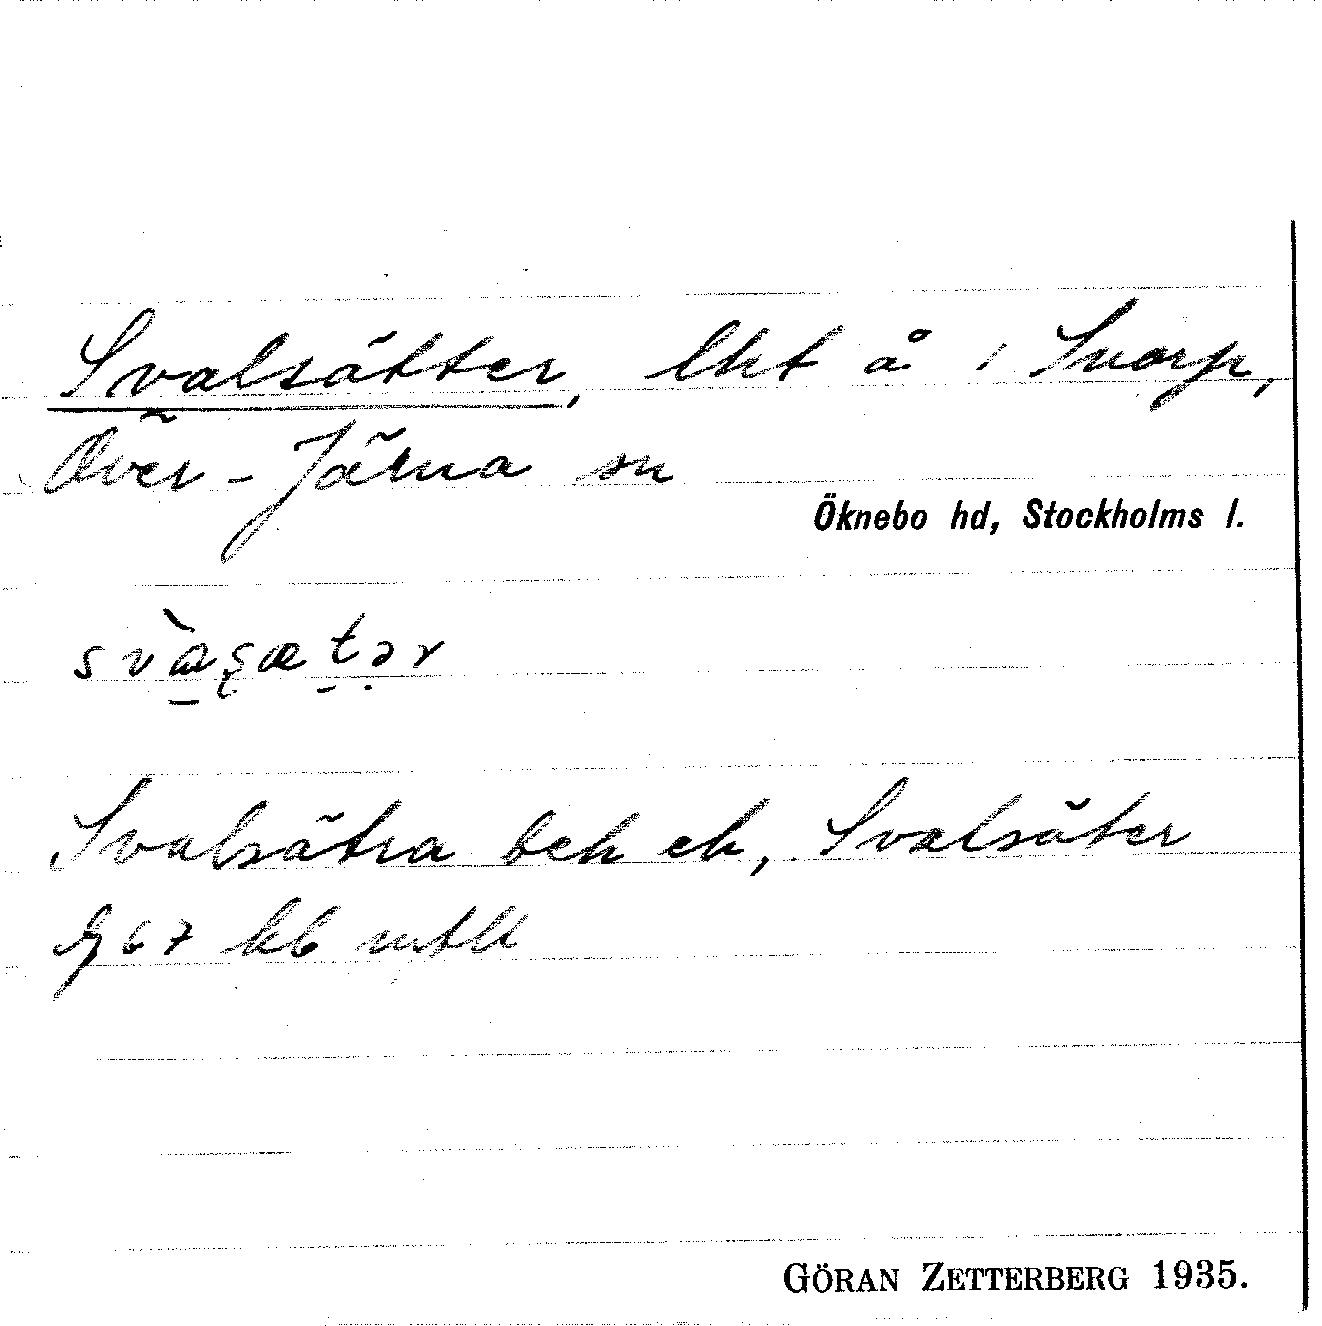 Svalsätter, lht å 1 Snorp,
Över-Järna sn
Öknebo hd, Stockholms l.
Svalsätra beh ek, Svalsäter
J 67 kb mtll
GÖRAN ZETTERBERG 1935.